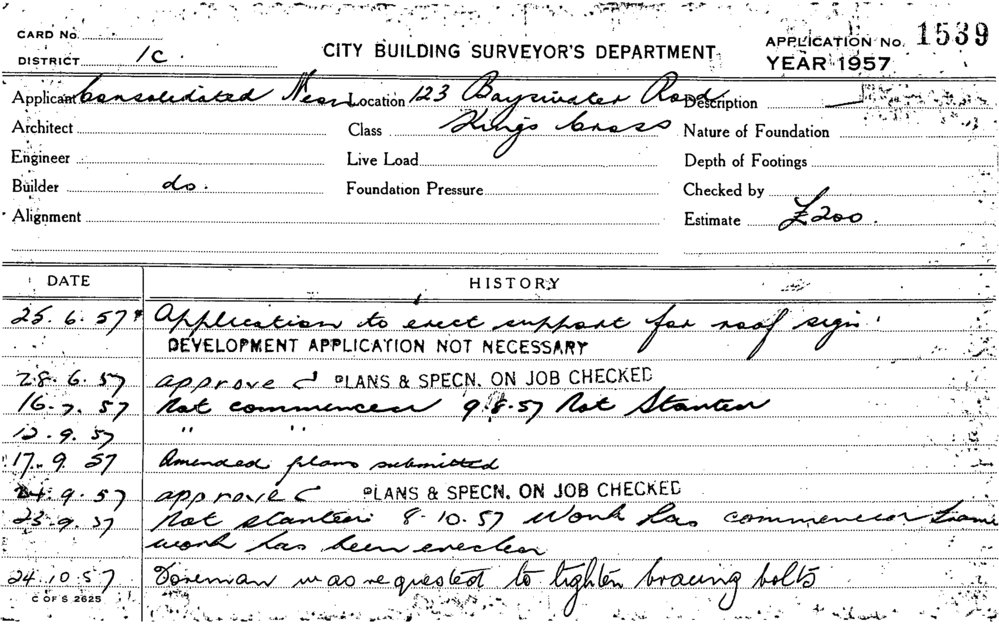 CARD No.
DISTRICT 1C.
CITY BUILDING SURVEYOR'S DEPARTMENT
APPLICATION No. 1539
YEAR 1957
Applicant Consolidated Neon Location 123 Bayswater Road Description —
Architect Class Kings Cross Nature of Foundation
Engineer Live Load Depth of Footings
Builder do. Foundation Pressure Checked by
Alignment Estimate £200.
DATE HISTORY
25.6.57 Application to erect support for roof sign.
DEVELOPMENT APPLICATION NOT NECESSARY
28.6.57 approved PLANS & SPECN. ON JOB CHECKED
16.7.57 Not commenced 9.8.57 Not Started
12.9.57 " "
17.9.57 Amended plans submitted
24.9.57 approved PLANS & SPECN. ON JOB CHECKED
23.9.57 Not started. 8.10.57 Work has commenced frame
work has been erected
24.10.57 Foreman was requested to tighten bracing bolts
C OF S 2625